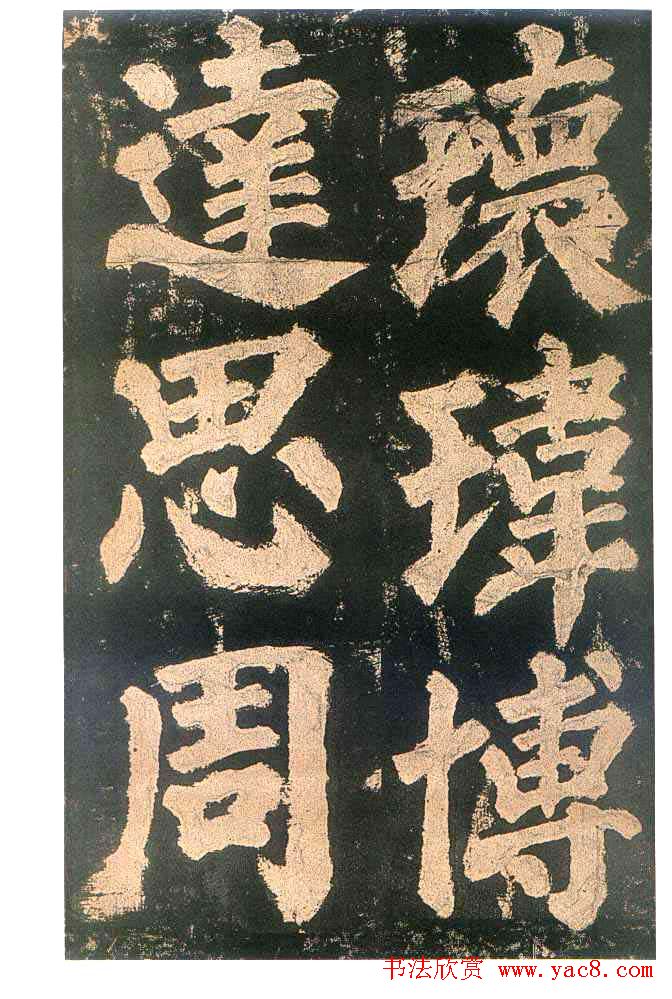 瓌瑋博
達思周
书法欣赏 www.yac8.com